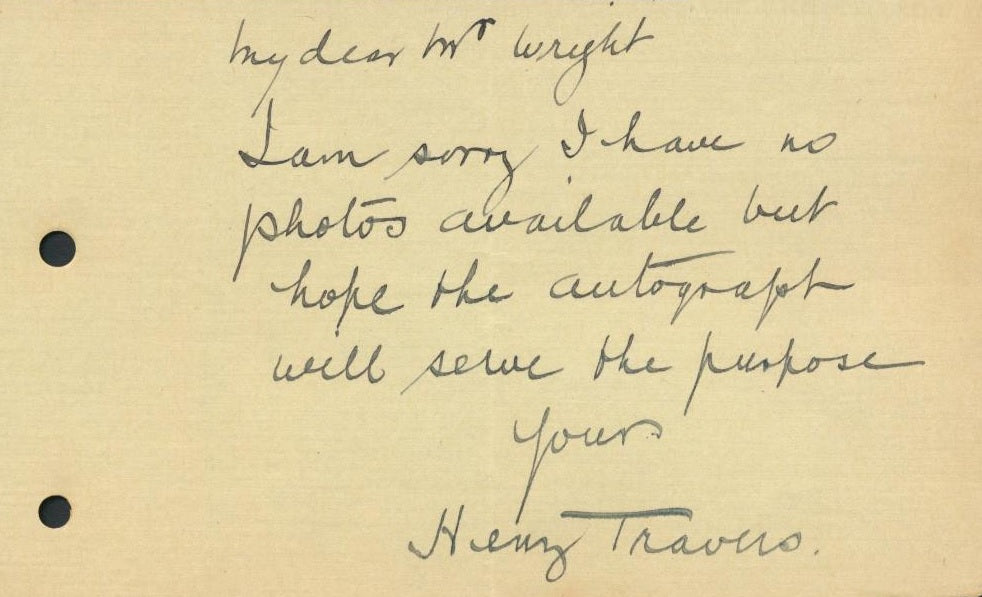 My dear Mr Wright
I am sorry I have no
photos available but
hope the autograph
will serve the purpose
Yours
Henry Travers.